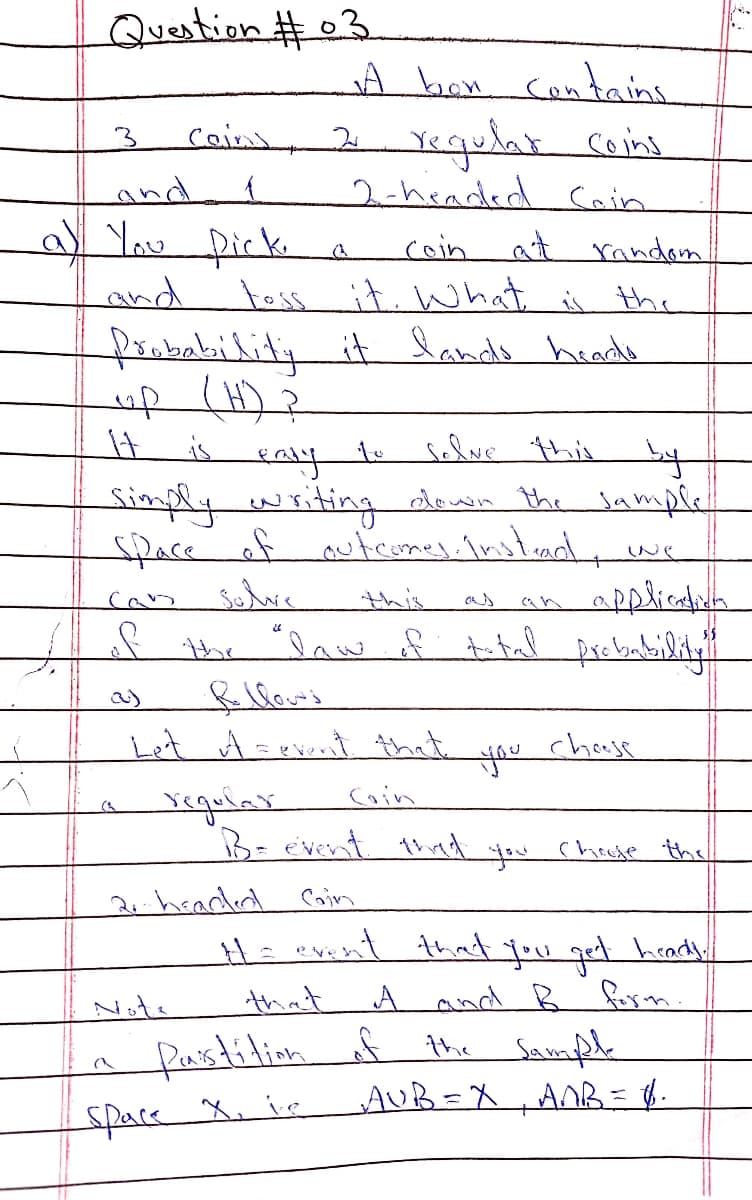 Question # 03
A box contains
3 coins, 2 regular coins
and 1 2-headed Coin
a) You Pick a coin at random
and toss it. What is the
Probability it lands heads
up (H)?
It is easy to solve this by
simply writing down the sample
space of outcomes. Instead, we
can solve this as an application
of the "law of total probability"
as follows
Let A = event that you choose
a regular coin
B = event that you choose the
2-headed Coin
H = event that you get heads.
Note that A and B form
a Partition of the Sample
space X, i.e A∪B = X, A∩B = ∅.